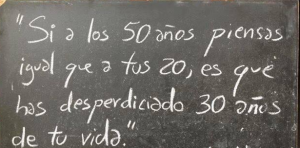 "Si a los 50 años piensas
igual que a tus 20, es que
has desperdiciado 30 años
de tu vida."